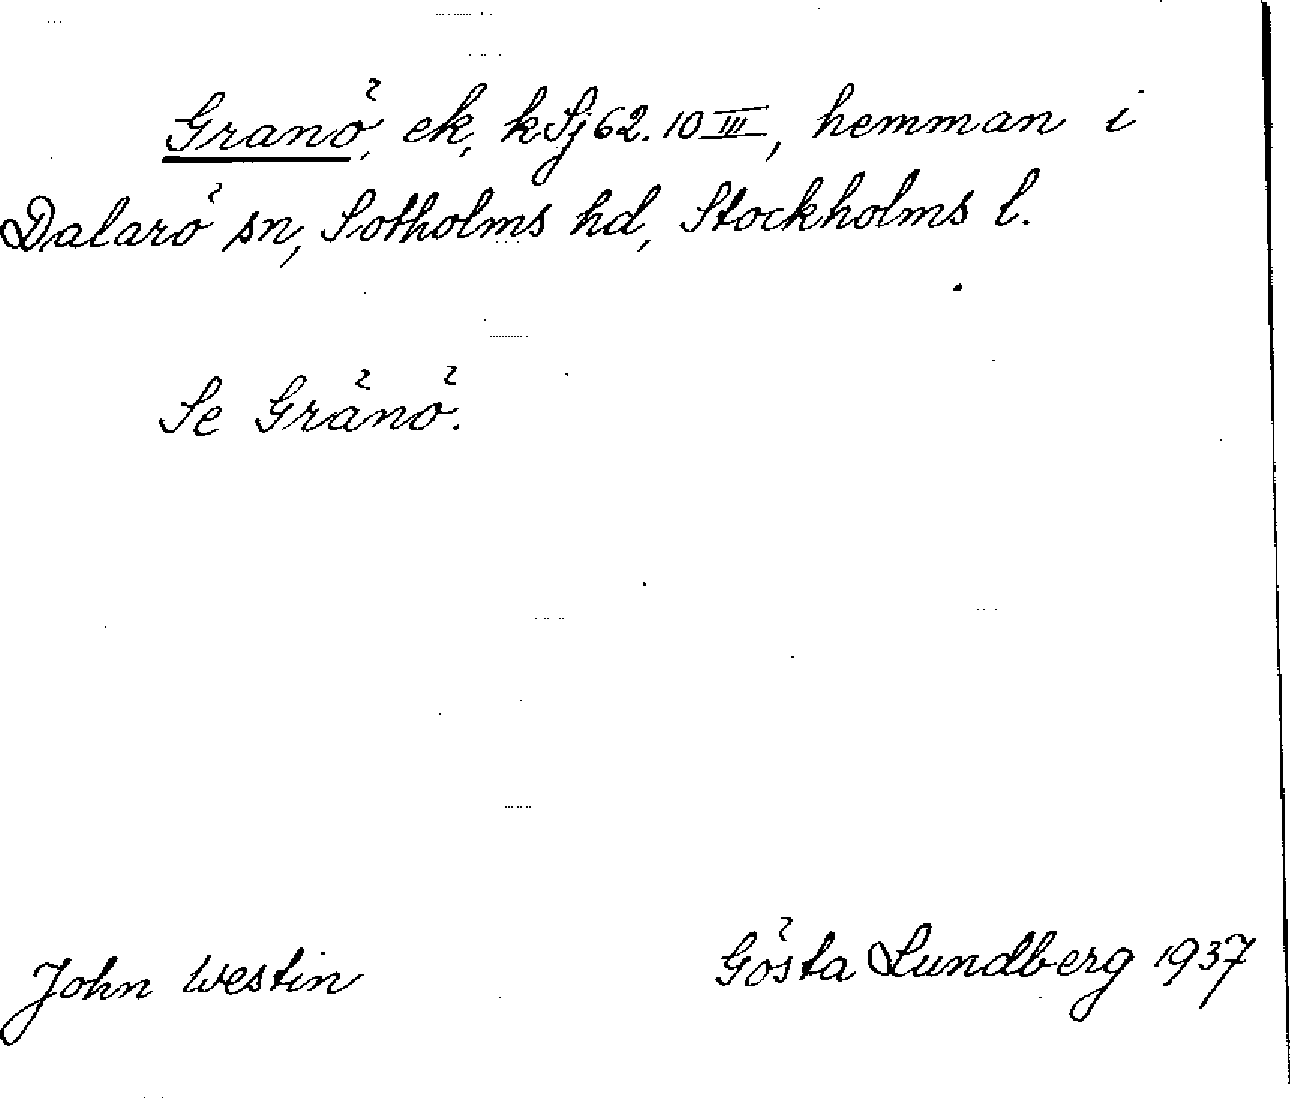 Granö, ek, k Sj 62. 10 III, hemman i
Dalarö sn, Sotholms hd, Stockholms l.
Se Gränö.
John Westin
Gösta Lundberg 1937